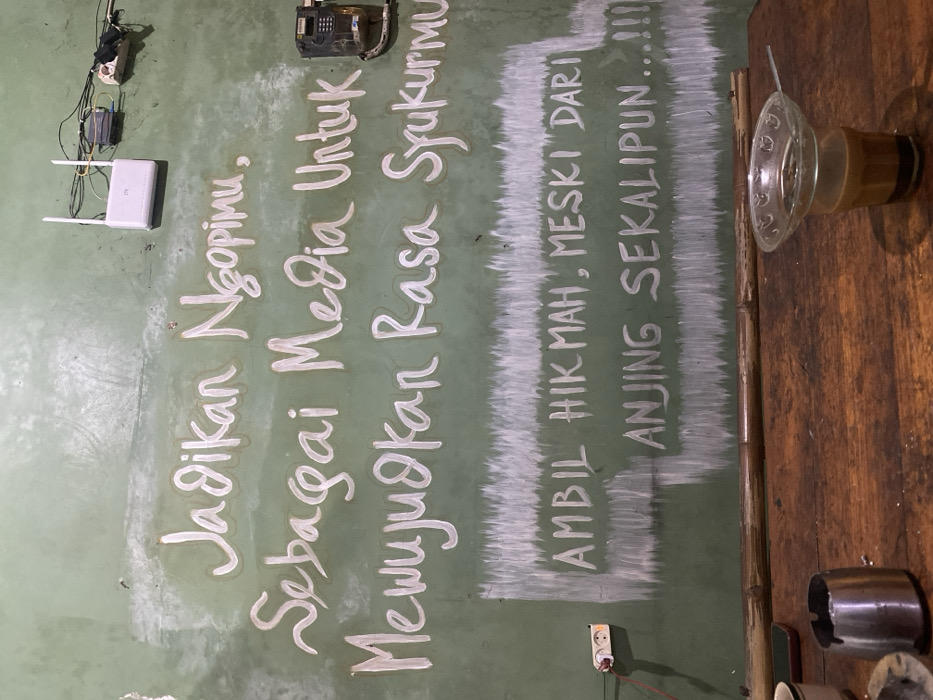 Jadikan Ngopimu,
Sebagai Media Untuk
Mewujudkan Rasa Syukurmu
AMBIL HIKMAH, MESKI DARI
ANJING SEKALIPUN...!!!